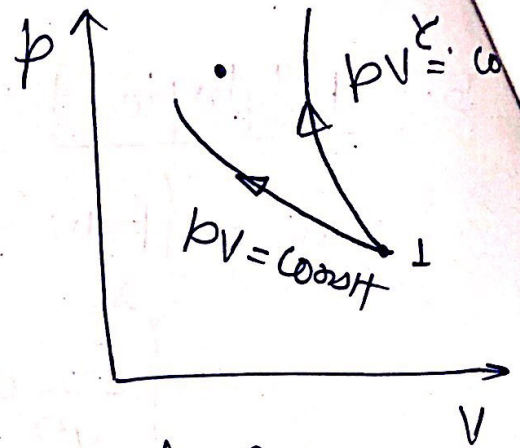 p
pV^γ = co
pV = const
1
V